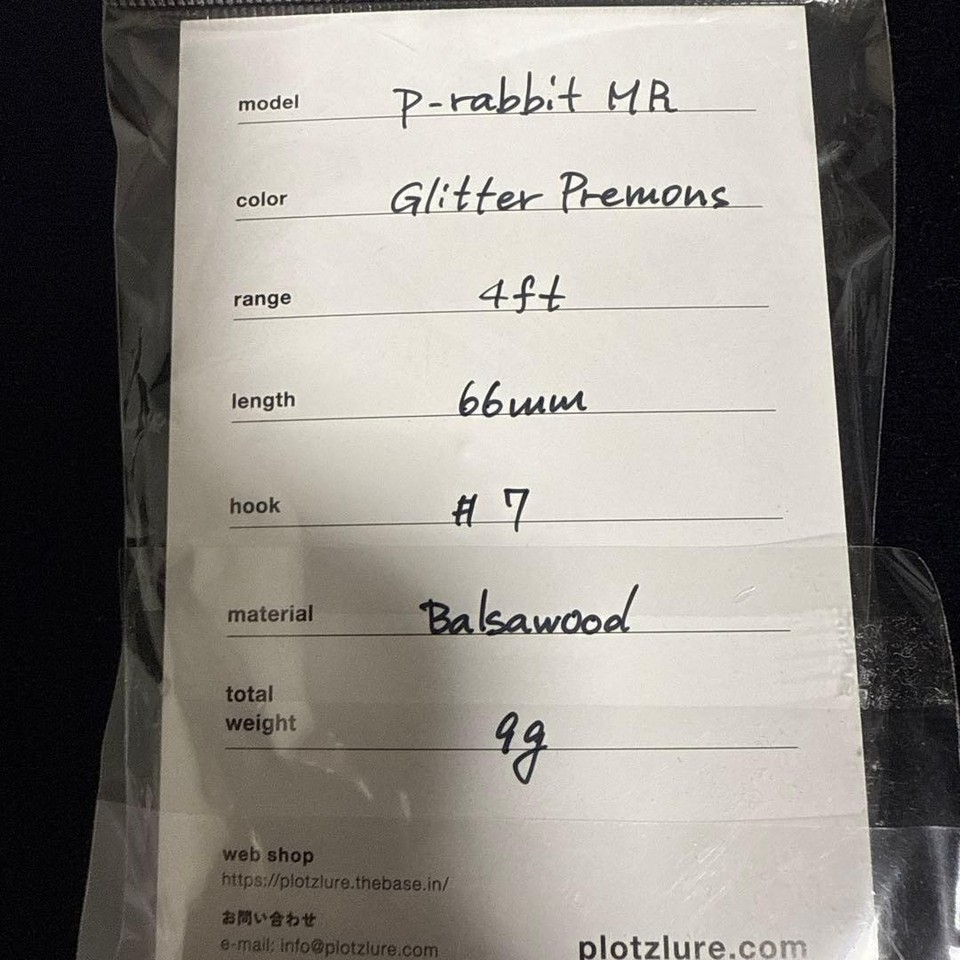 model P-rabbit MR
color Glitter Premons
range 4ft
length 66mm
hook # 7
material Balsawood
total
weight 9g
web shop
https://plotzlure.thebase.in/
お問い合わせ
e-mail: info@plotzlure.com
plotzlure.com